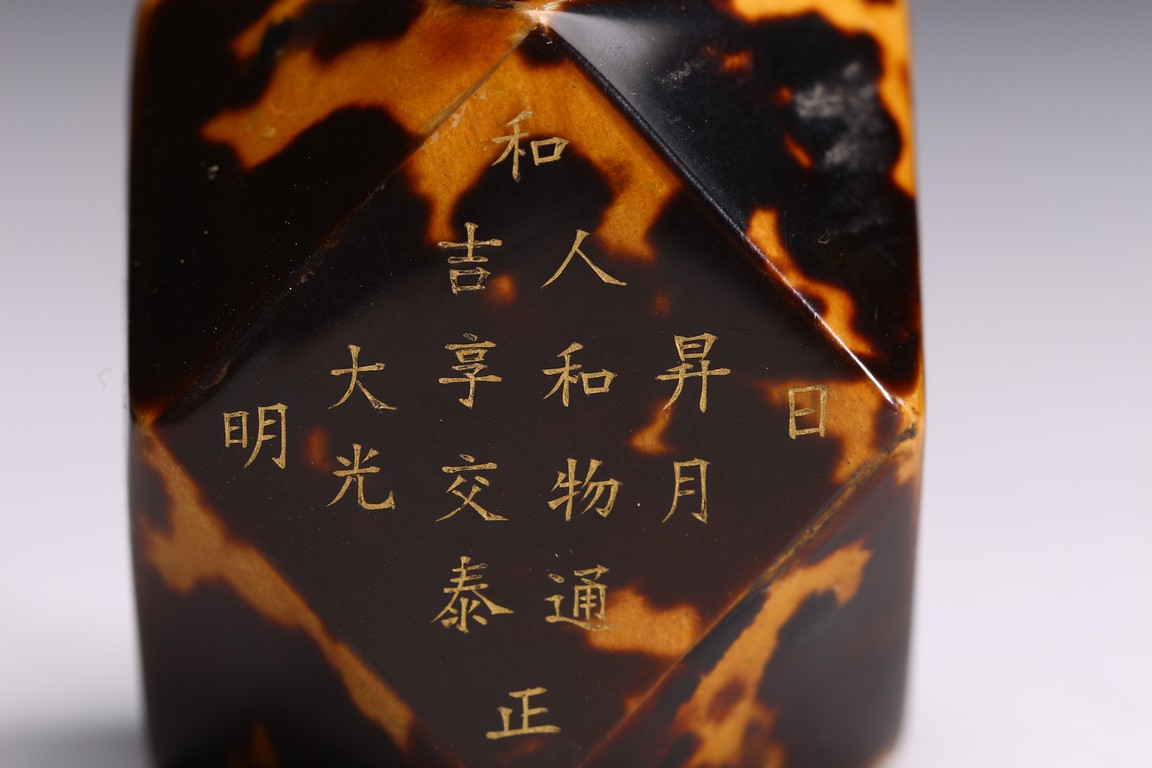 日
昇月
人和物通
和正
吉享交泰
大光
明